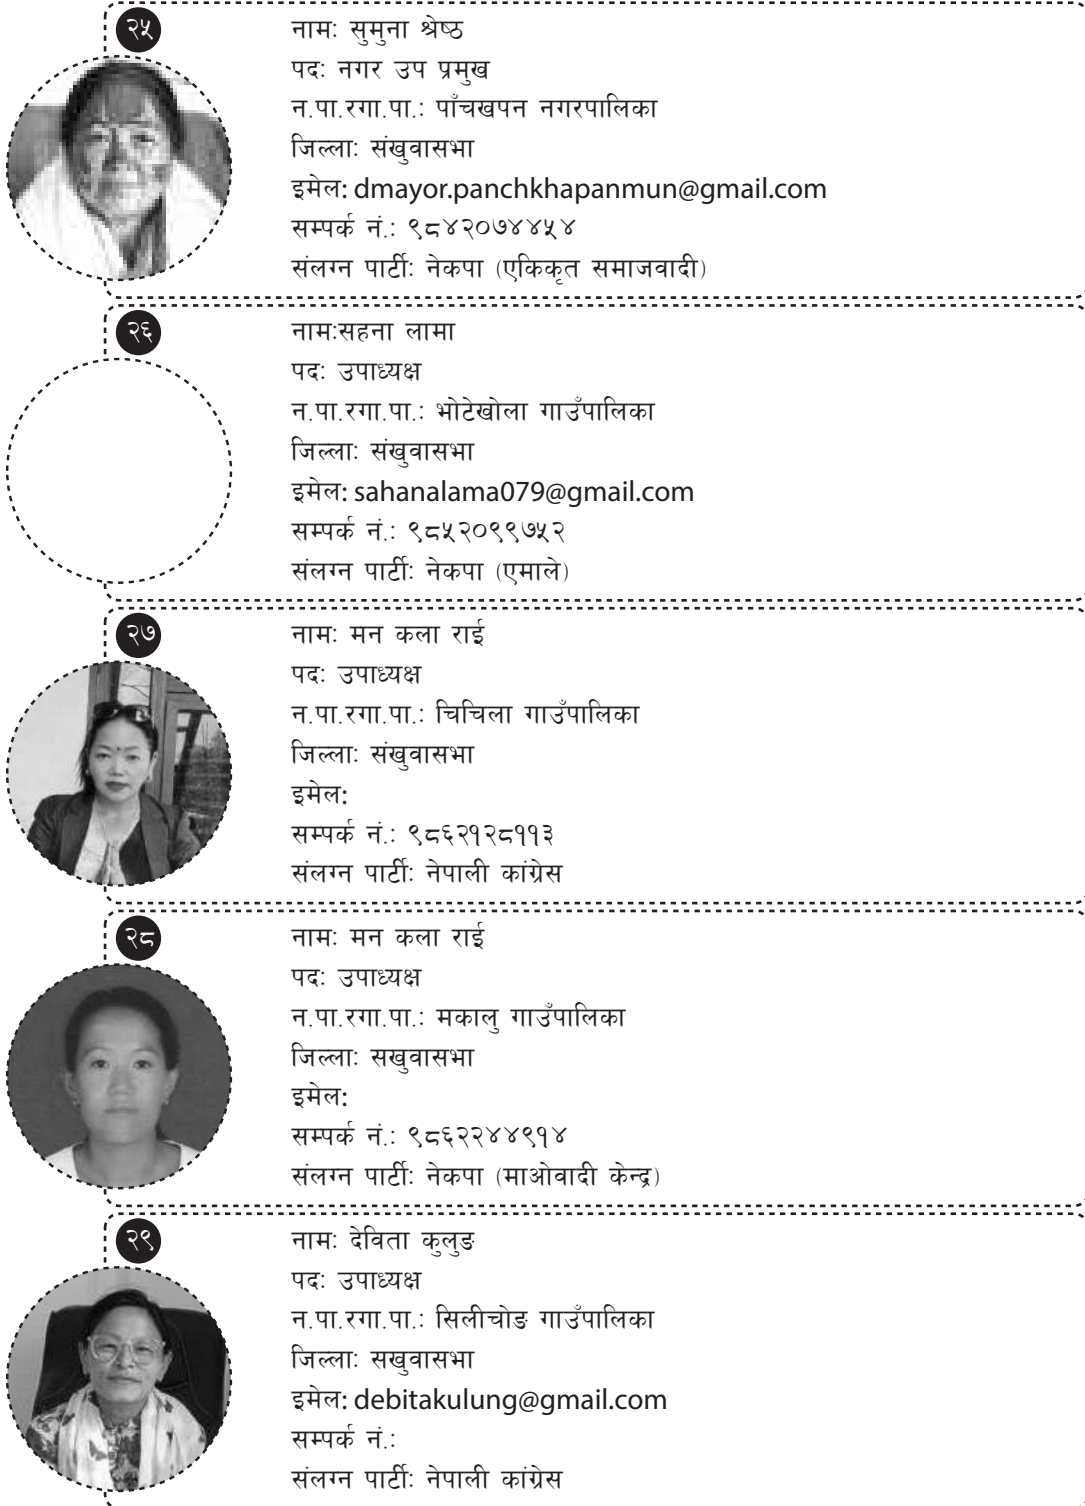 २५
नामः सुमुना श्रेष्ठ
पदः नगर उप प्रमुख
न.पा.रगा.पा.: पाँचखपन नगरपालिका
जिल्लाः संखुवासभा
इमेल: dmayor.panchkhapanmun@gmail.com
सम्पर्क नं.: ९८४२०७४४५४
संलग्न पार्टीः नेकपा (एकिकृत समाजवादी)
२६
नामःसहना लामा
पदः उपाध्यक्ष
न.पा.रगा.पा.: भोटेखोला गाउँपालिका
जिल्लाः संखुवासभा
इमेल: sahanalama079@gmail.com
सम्पर्क नं.: ९८५२०९९७५२
संलग्न पार्टीः नेकपा (एमाले)
२७
नामः मन कला राई
पदः उपाध्यक्ष
न.पा.रगा.पा.: चिचिला गाउँपालिका
जिल्लाः संखुवासभा
इमेल:
सम्पर्क नं.: ९८६२१२८११३
संलग्न पार्टीः नेपाली कांग्रेस
२८
नामः मन कला राई
पदः उपाध्यक्ष
न.पा.रगा.पा.: मकालु गाउँपालिका
जिल्लाः सखुवासभा
इमेल:
सम्पर्क नं.: ९८६२२४४९१४
संलग्न पार्टीः नेकपा (माओवादी केन्द्र)
२९
नामः देविता कुलुङ
पदः उपाध्यक्ष
न.पा.रगा.पा.: सिलीचोङ गाउँपालिका
जिल्लाः सखुवासभा
इमेल: debitakulung@gmail.com
सम्पर्क नं.:
संलग्न पार्टीः नेपाली कांग्रेस